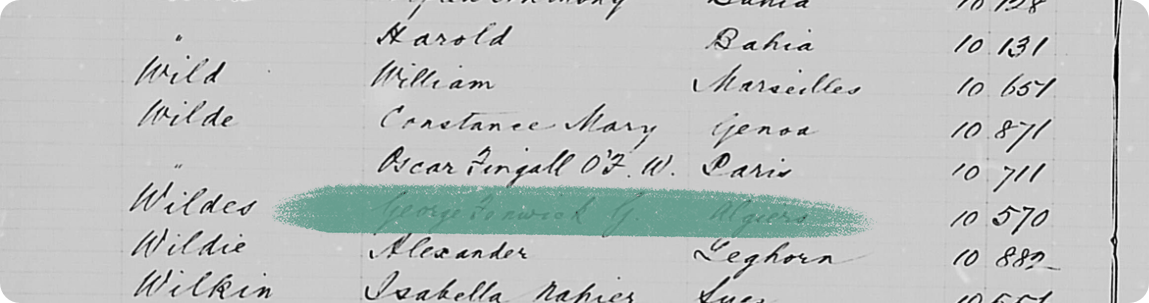 " Harold Bahia 10 131
Wild William Marseilles 10 651
Wilde Constance Mary Genoa 10 871
" Oscar Fingall O'F. W. Paris 10 711
Wildes George Fenwick G. Algiers 10 570
Wildie Alexander Leghorn 10 882
Wilkin Isabella Napier Suez 10